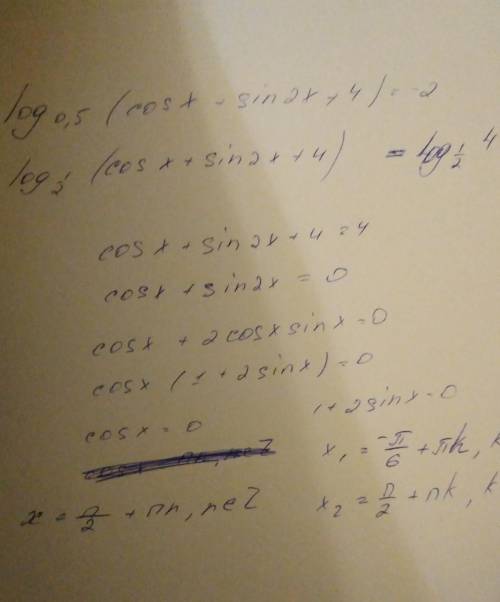 log 0,5 (cosx + sin2x + 4) = -2
log 1/2 (cosx + sin2x + 4) = log 1/2 4
cosx + sin2x + 4 = 4
cosx + sin2x = 0
cosx + 2cosxsinx = 0
cosx (1 + 2sinx) = 0
cosx = 0 1 + 2sinx = 0
x₁ = -π/6 + πk, k
x = π/2 + πn, n∈Z x₂ = π/2 + πk, k